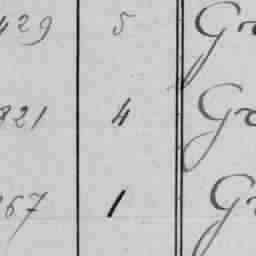 429 5 Gr
821 4 Gr
267 1 Gr